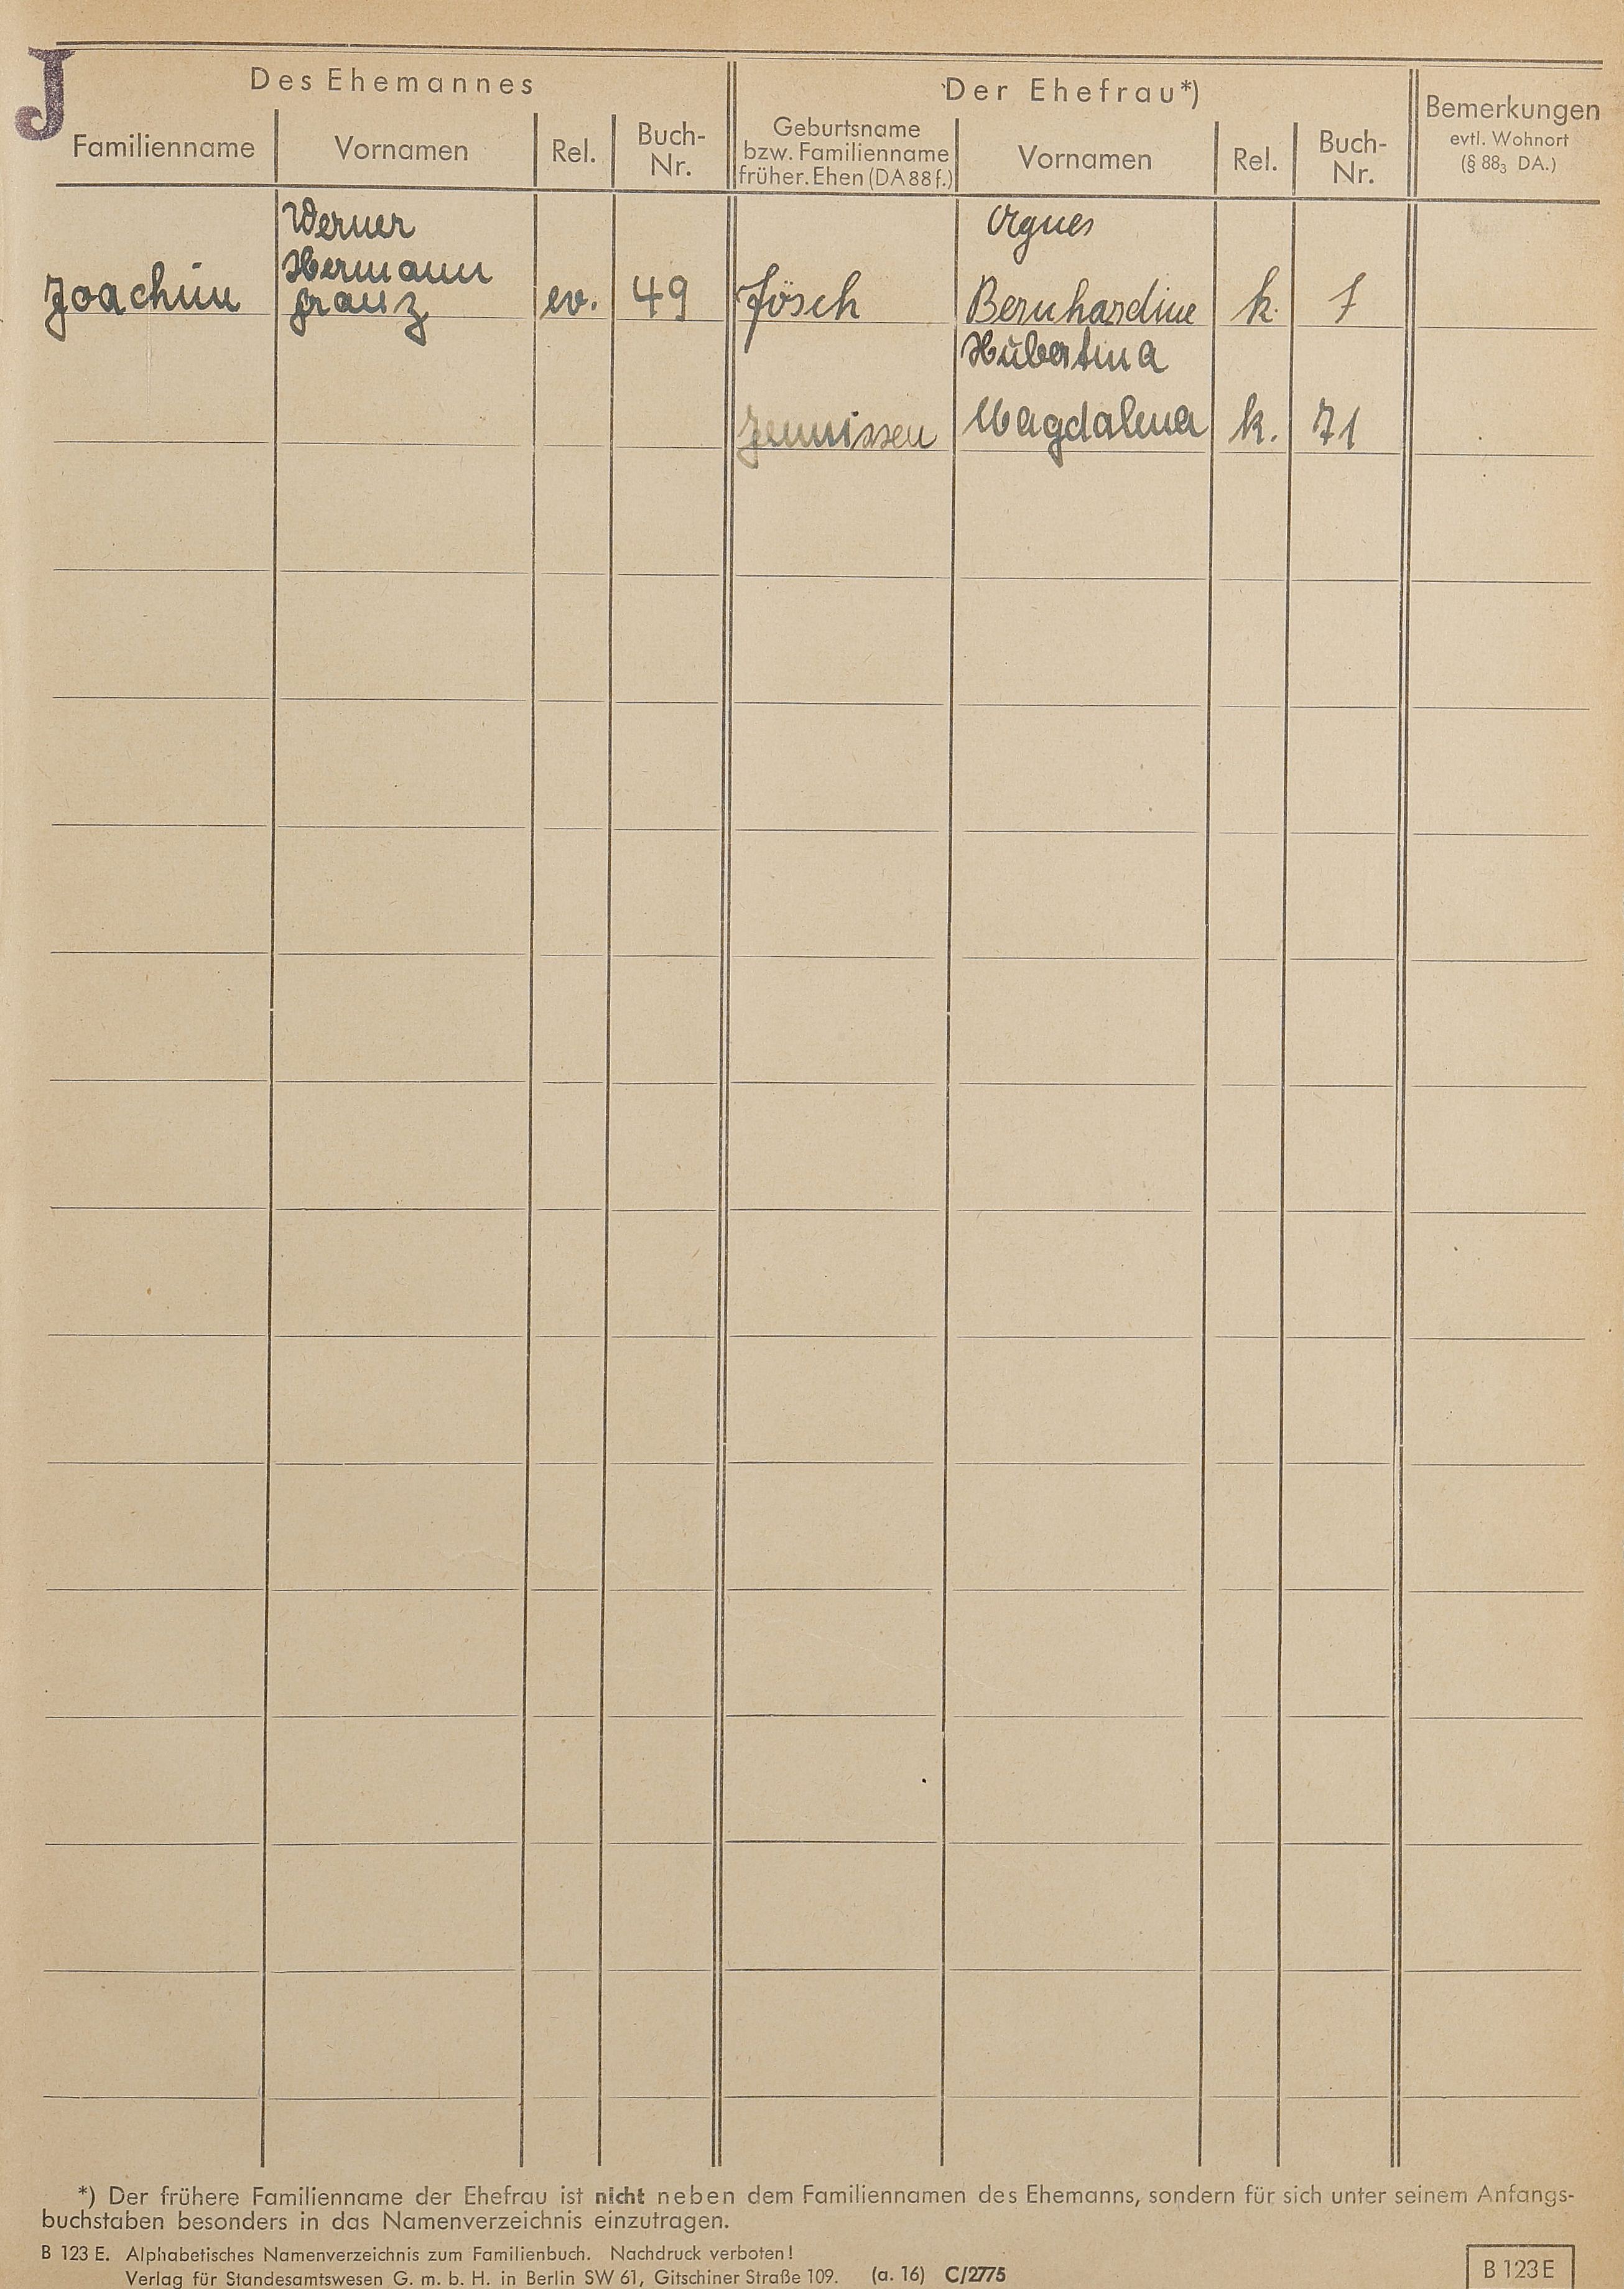 J
Des Ehemannes
Der Ehefrau*)
Bemerkungen
evtl. Wohnort
(§ 88₃ DA.)
Familienname
Vornamen
Rel.
Buch-
Nr.
Geburtsname
bzw. Familienname
früher. Ehen (DA 88 f.)
Vornamen
Rel.
Buch-
Nr.
Werner
Agnes
Hermann
Joachim Franz ev. 49 Jösch Bernhardine k. 7
Hubertina
Jennissen Magdalena k. 71
*) Der frühere Familienname der Ehefrau ist nicht neben dem Familiennamen des Ehemanns, sondern für sich unter seinem Anfangs-
buchstaben besonders in das Namenverzeichnis einzutragen.
B 123 E. Alphabetisches Namenverzeichnis zum Familienbuch. Nachdruck verboten!
Verlag für Standesamtswesen G. m. b. H. in Berlin SW 61, Gitschiner Straße 109. (a. 16) C/2775
B 123 E